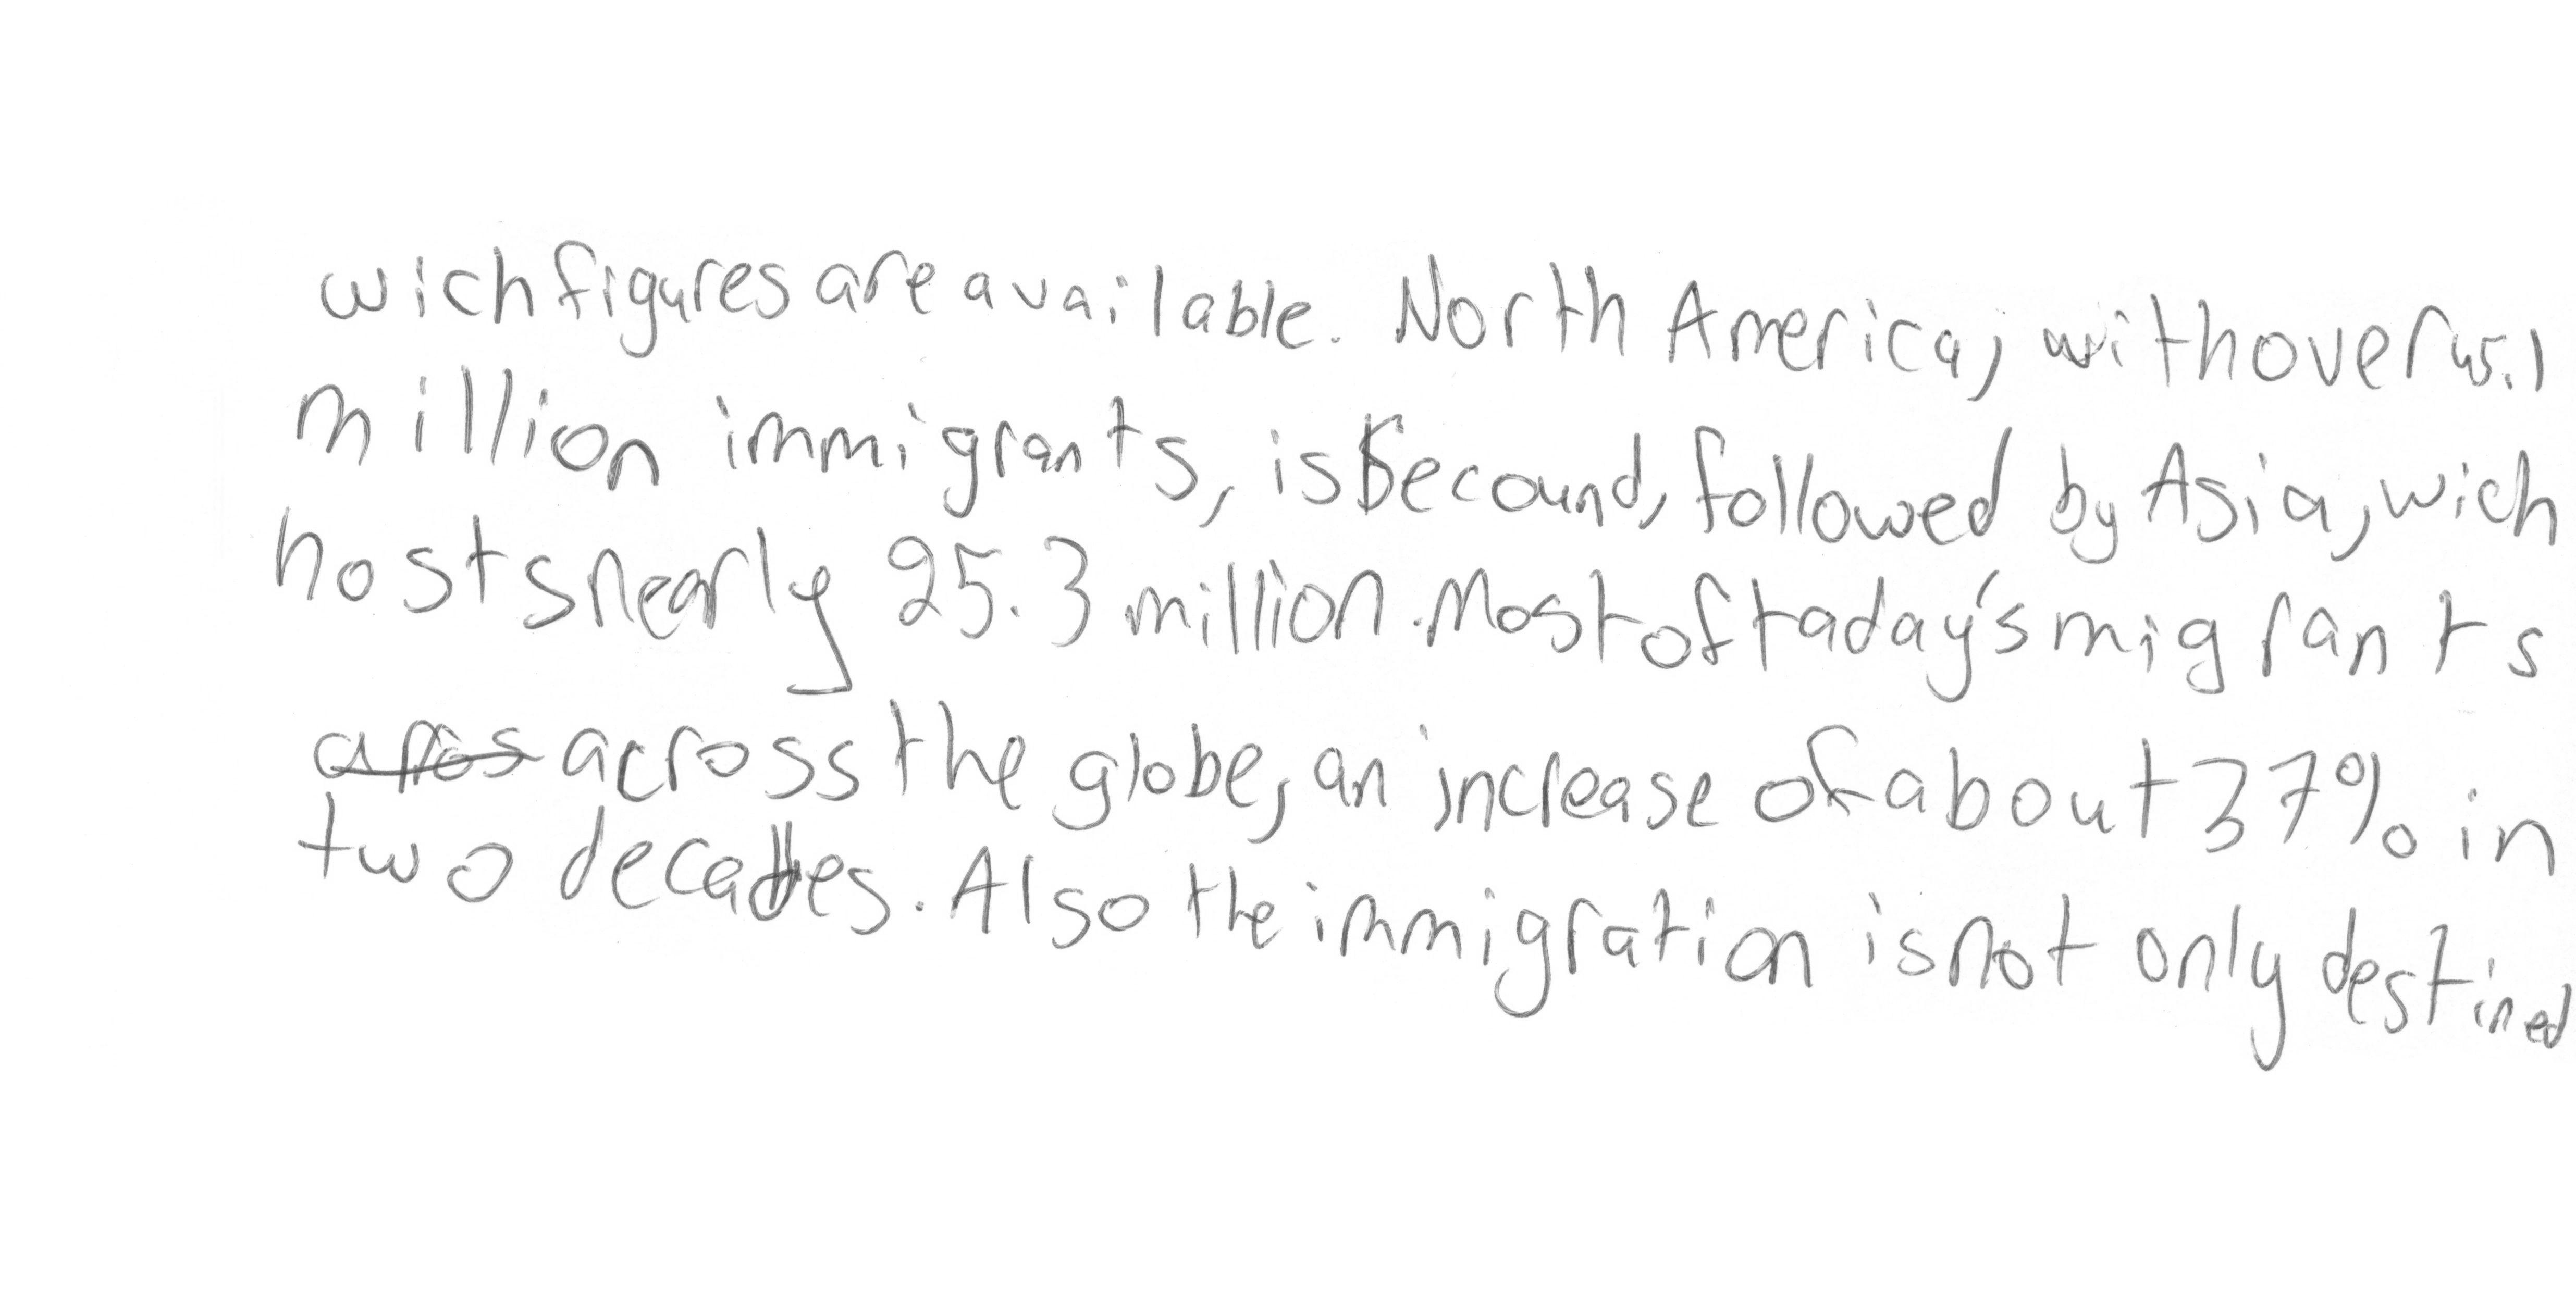 wich figures are available. North America, with over 45.1
million immigrants, is secound, followed by Asia, wich
hosts nearly 25.3 million. Most of taday's migrants
across the globe, an increase of about 37% in
two decades. Also the immigration is not only destined